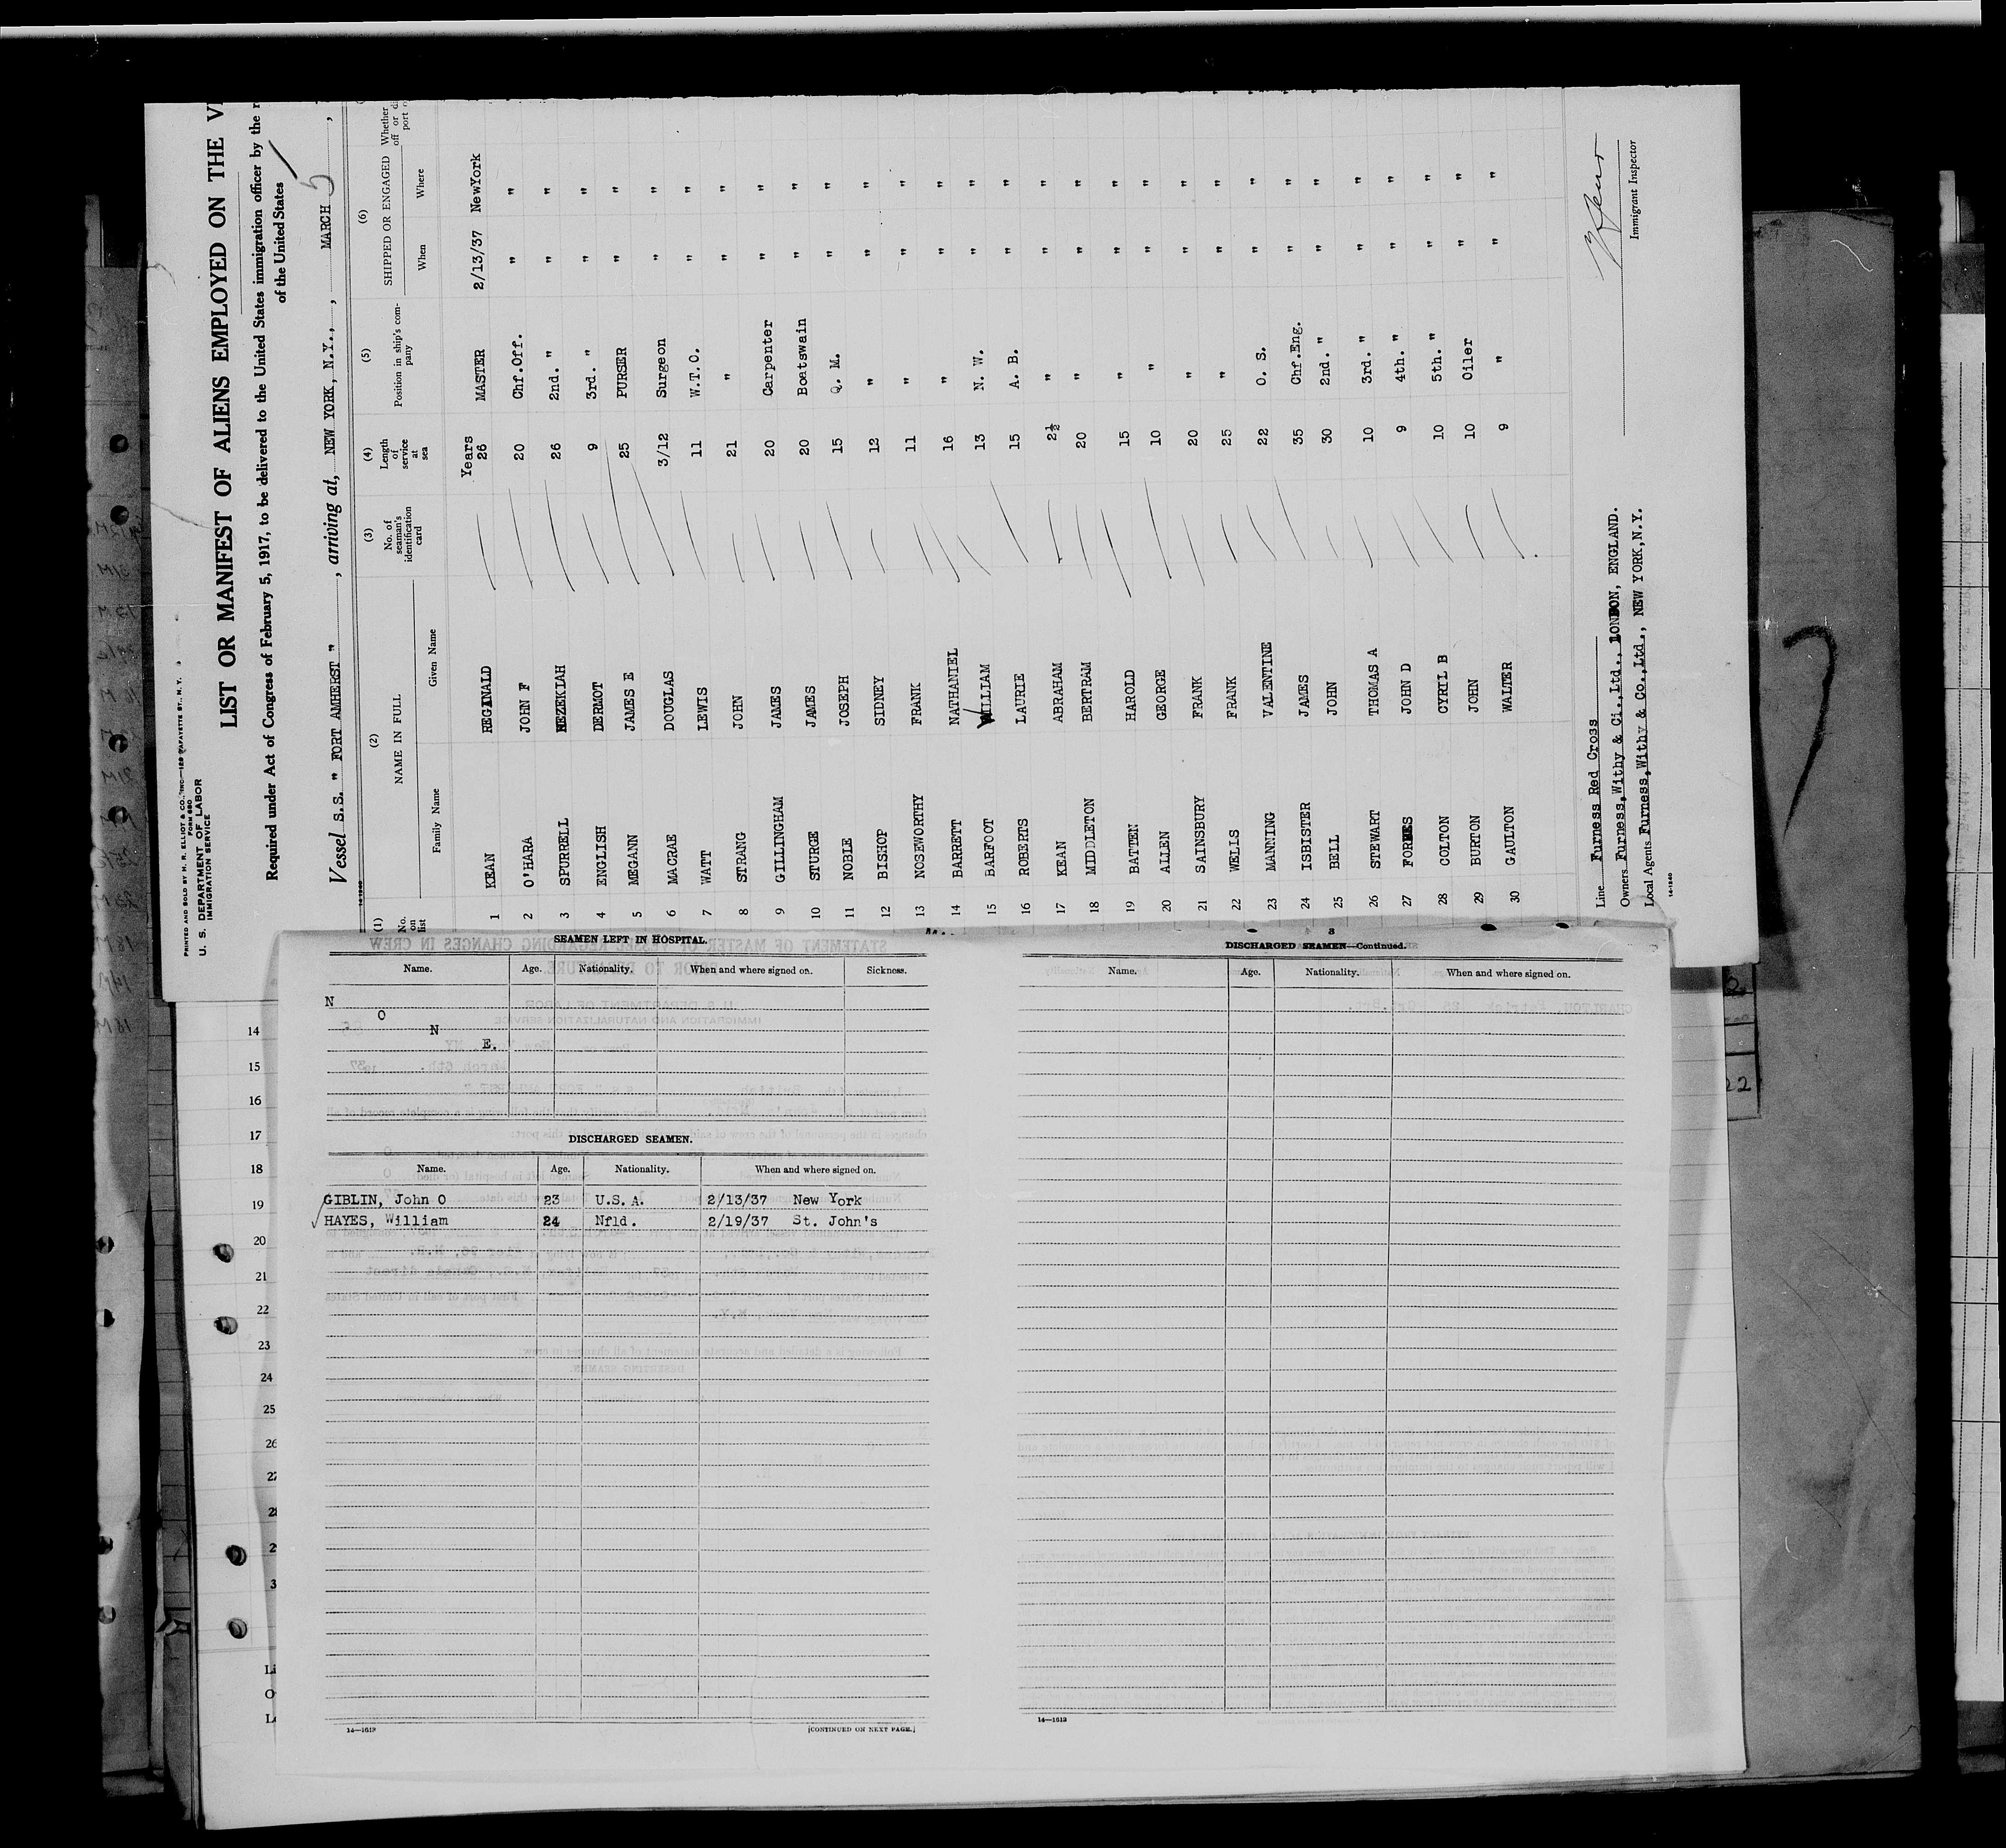 PRINTED AND SOLD BY M. R. ELLIOT & CO., INC.—129 LAFAYETTE ST., N. Y.
FORM 680
U. S. DEPARTMENT OF LABOR
IMMIGRATION SERVICE
LIST OR MANIFEST OF ALIENS EMPLOYED ON THE
Required under Act of Congress of February 5, 1917, to be delivered to the United States immigration officer by the
of the United States
Vessel S.S. " FORT AMHERST ", arriving at, NEW YORK, N.Y., , MARCH 5 ,
(1) (2) (3) (4) (5) (6)
No. on list NAME IN FULL No. of seaman's identification card Length of service at sea Position in ship's company SHIPPED OR ENGAGED Whether
Family Name Given Name When Where
Years
1 KEAN REGINALD 26 MASTER 2/13/37 NewYork
2 O'HARA JOHN F 20 Chf.Off. " "
3 SPURRELL HEZEKIAH 26 2nd. " " "
4 ENGLISH DERMOT 9 3rd. " " "
5 MEGANN JAMES E 25 PURSER " "
6 MACRAE DOUGLAS 3/12 Surgeon " "
7 WATT LEWIS 11 W.T.O. " "
8 STRANG JOHN 21 " " "
9 GILLINGHAM JAMES 20 Carpenter " "
10 STURGE JAMES 20 Boatswain " "
11 NOBLE JOSEPH 15 Q. M. " "
12 BISHOP SIDNEY 12 " " "
13 NOSEWORTHY FRANK 11 " " "
14 BARRETT NATHANIEL 16 " " "
15 BARFOOT WILLIAM 13 N. W. " "
16 ROBERTS LAURIE 15 A. B. " "
17 KEAN ABRAHAM 2½ " " "
18 MIDDLETON BERTRAM 20 " " "
19 BATTEN HAROLD 15 " "
20 ALLEN GEORGE 10 " " "
21 SAINSBURY FRANK 20 " " "
22 WELLS FRANK 25 " " "
23 MANNING VALENTINE 22 O. S. " "
24 ISBISTER JAMES 35 Chf.Eng. " "
25 BELL JOHN 30 2nd. " " "
26 STEWART THOMAS A 10 3rd. " " "
27 FORBES JOHN D 9 4th. " " "
28 COLTON CYRIL B 10 5th. " " "
29 BURTON JOHN 10 Oiler " "
30 GAULTON WALTER 9 " " "
Line Furness Red Cross
Owners Furness,Withy & Ci.,Ltd., LONDON, ENGLAND.
Local Agents Furness,Withy & Co.,Ltd., NEW YORK,N.Y.
Immigrant Inspector
14-1240
SEAMEN LEFT IN HOSPITAL.
Name. Age. Nationality. When and where signed on. Sickness.
N
O
N
E.
DISCHARGED SEAMEN.
Name. Age. Nationality. When and where signed on.
GIBLIN, John O 23 U.S.A. 2/13/37 New York
HAYES, William 24 Nfld. 2/19/37 St. John's
14—1613
[CONTINUED ON NEXT PAGE.]
3
DISCHARGED SEAMEN—Continued.
Name. Age. Nationality. When and where signed on.
14—1613
14
15
16
17
18
19
20
21
22
23
24
25
26